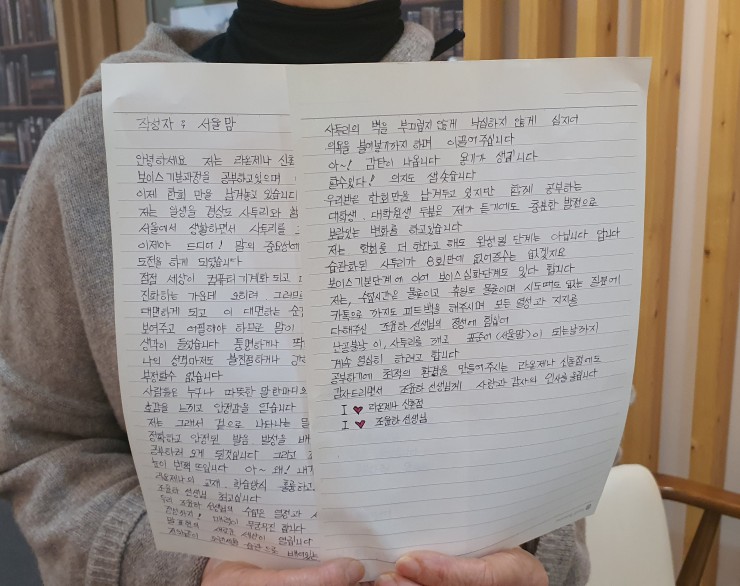 작성자 : 서울맘
안녕하세요 저는 라온제나 신촌
보이스기본과정을 공부하고있으며
이제 한회 만을 남겨놓고 있습니다
저는 일생을 경상도 사투리와
서울에서 생활하면서 사투리를
이제야 드디어! 말의 중요성에
도전을 하게 되었습니다
점점 세상이 컴퓨터 기계화 되고
진화하는 가운데 오히려 그러므로
대면하게 되고 이 대면하는 순
보여주고 어필해야 하므로 말이
생각이 들었습니다 퉁명하거나
나의 성격마저도 불친절하거나
부정할수 없습니다
사람들은 누구나 따뜻한 말 한마디의
호감을 느끼고 안정감을 얻습니다
저는 그래서 겉으로 나타나는
정확하고 안정된 발음 발성을 배
공부하러 오게 된것입니다 그리고
눈이 번쩍 뜨입니다 아~ 왜! 내가
라온제나의 교재, 학습방식 훌륭하고
조율하 선생님 최고입니다
우리 조율하 선생님의 수업은 열정과
새로운 세상이 열립니다
사투리의 벽을 부끄럽지 않게 낙심하지 않게 심지어
의욕을 불어넣기까지 하며 이끌어주십니다
아~! 감탄이 나옵니다 용기가 생깁니다
할수있다! 의지도 샘솟습니다
우리반은 한회만을 남겨두고 있지만 함께 공부하는
대학생, 대학원생 두분은 제가 듣기에도 충분한 발전으로
보람있는 변화를 하고있습니다
저는 한회를 더 한다고 해도 완성될 단계는 아닙니다 압니다
습관화된 사투리가 8회만에 없어질수는 없겠지요
보이스기본단계에 이어 보이스심화단계도 있다 합니다
저는, 수업시간은 물론이고 휴일도 물론이며 시도때도 없는 질문에
카톡으로 까지도 피드백을 해주시며 모든 열성과 지지를
다해주신 조율하 선생님의 정성에 힘입어
난공불낙 이, 사투리를 깨고 표준어 (서울맘)이 되는날까지
계속 열심히 하려고 합니다
공부하기에 최적의 환경을 만들어주시는 라온제나 신촌점에도
감사드리면서 조율하 선생님께 사랑과 감사의 인사를 올립니다
I ♥ 라온제나 신촌점
I ♥ 조율하 선생님